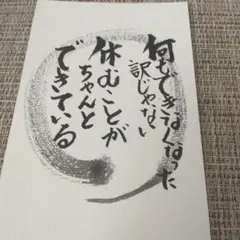 何もできなくなった
訳じゃない
休むことが
ちゃんと
できている